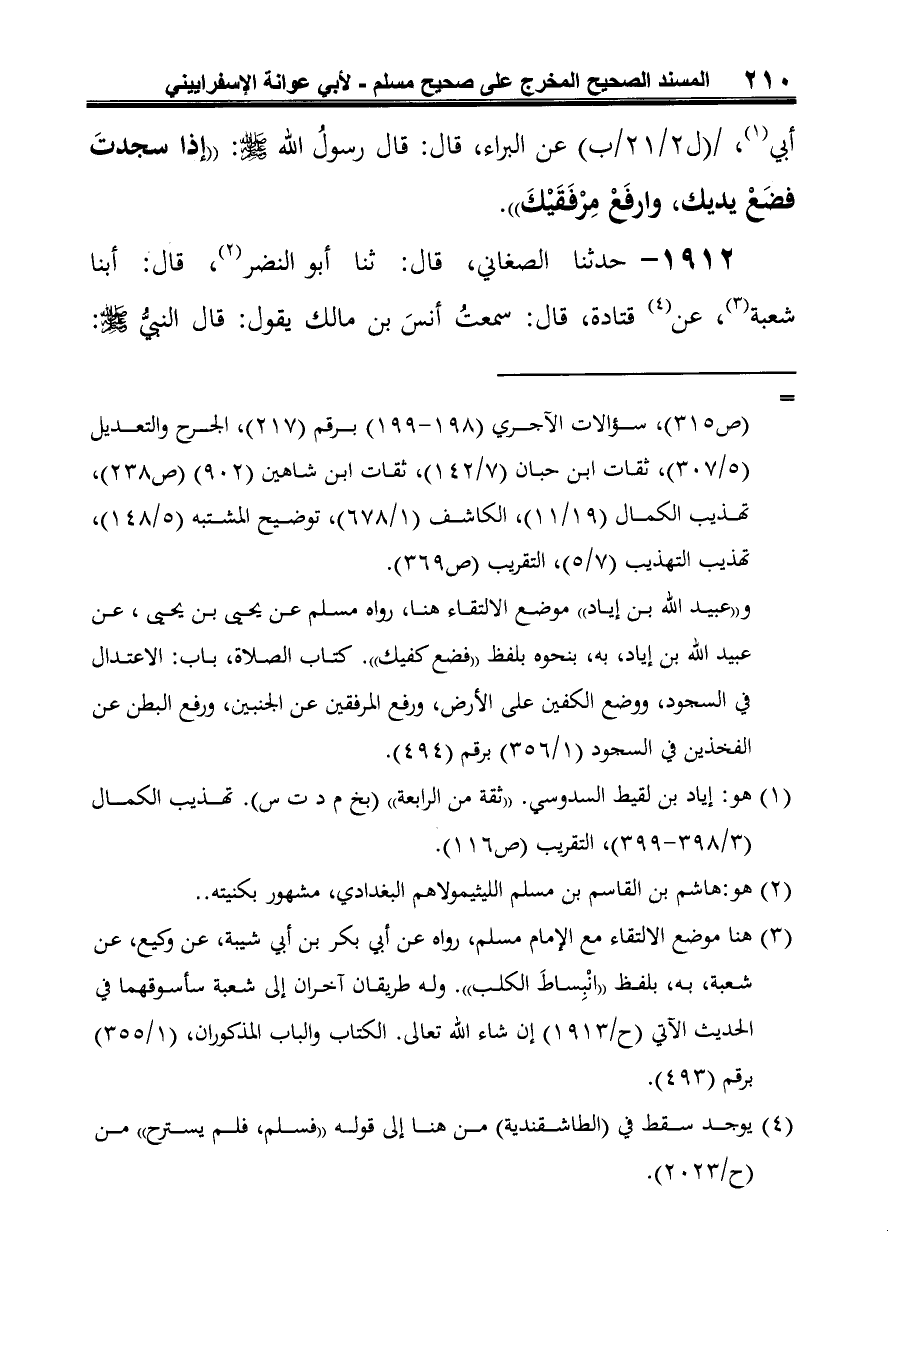 ٢١٠ المسند الصحيح المخرج على صحيح مسلم - لأبي عوانة الإسفراييني
أبي(١)، /(ل٢١/٢/ب) عن البراء، قال: قال رسولُ الله ﷺ: ((إذا سجدتَ
فضَعْ يديك، وارفَعْ مِرْفَقَيْكَ)).
١٩١٢- حدثنا الصغاني، قال: ثنا أبو النضر(٢)، قال: أبنا
شعبة(٣)، عن(٤) قتادة، قال: سمعتُ أنسَ بن مالك يقول: قال النبيُّ ﷺ:
=
(ص٣١٥)، سؤالات الآجري (١٩٨-١٩٩) برقم (٢١٧)، الجرح والتعديل
(٣٠٧/٥)، ثقات ابن حبان (١٤٢/٧)، ثقات ابن شاهين (٩٠٢) (ص٢٣٨)،
تهذيب الكمال (١١/١٩)، الكاشف (٦٧٨/١)، توضيح المشتبه (١٤٨/٥)،
تهذيب التهذيب (٥/٧)، التقريب (ص٣٦٩).
و((عبيد الله بن إياد)) موضع الالتقاء هنا، رواه مسلم عن يحيى بن يحيى ، عن
عبيد الله بن إياد، به، بنحوه بلفظ ((فضع كفيك)). كتاب الصلاة، باب: الاعتدال
في السجود، ووضع الكفين على الأرض، ورفع المرفقين عن الجنبين، ورفع البطن عن
الفخذين في السجود (٣٥٦/١) برقم (٤٩٤).
(١) هو: إياد بن لقيط السدوسي. ((ثقة من الرابعة)) (بخ م د ت س). تهذيب الكمال
(٣٩٨/٣-٣٩٩)، التقريب (ص١١٦).
(٢) هو:هاشم بن القاسم بن مسلم الليثيمولاهم البغدادي، مشهور بكنيته..
(٣) هنا موضع الالتقاء مع الإمام مسلم، رواه عن أبي بكر بن أبي شيبة، عن وكيع، عن
شعبة، به، بلفظ ((انْبِساطَ الكلب)). وله طريقان آخران إلى شعبة سأسوقهما في
الحديث الآتي (ح/١٩١٣) إن شاء الله تعالى. الكتاب والباب المذكوران، (٣٥٥/١)
برقم (٤٩٣).
(٤) يوجد سقط في (الطاشقندية) من هنا إلى قوله ((فسلم، فلم يسترح)) من
(ح/٢٠٢٣).